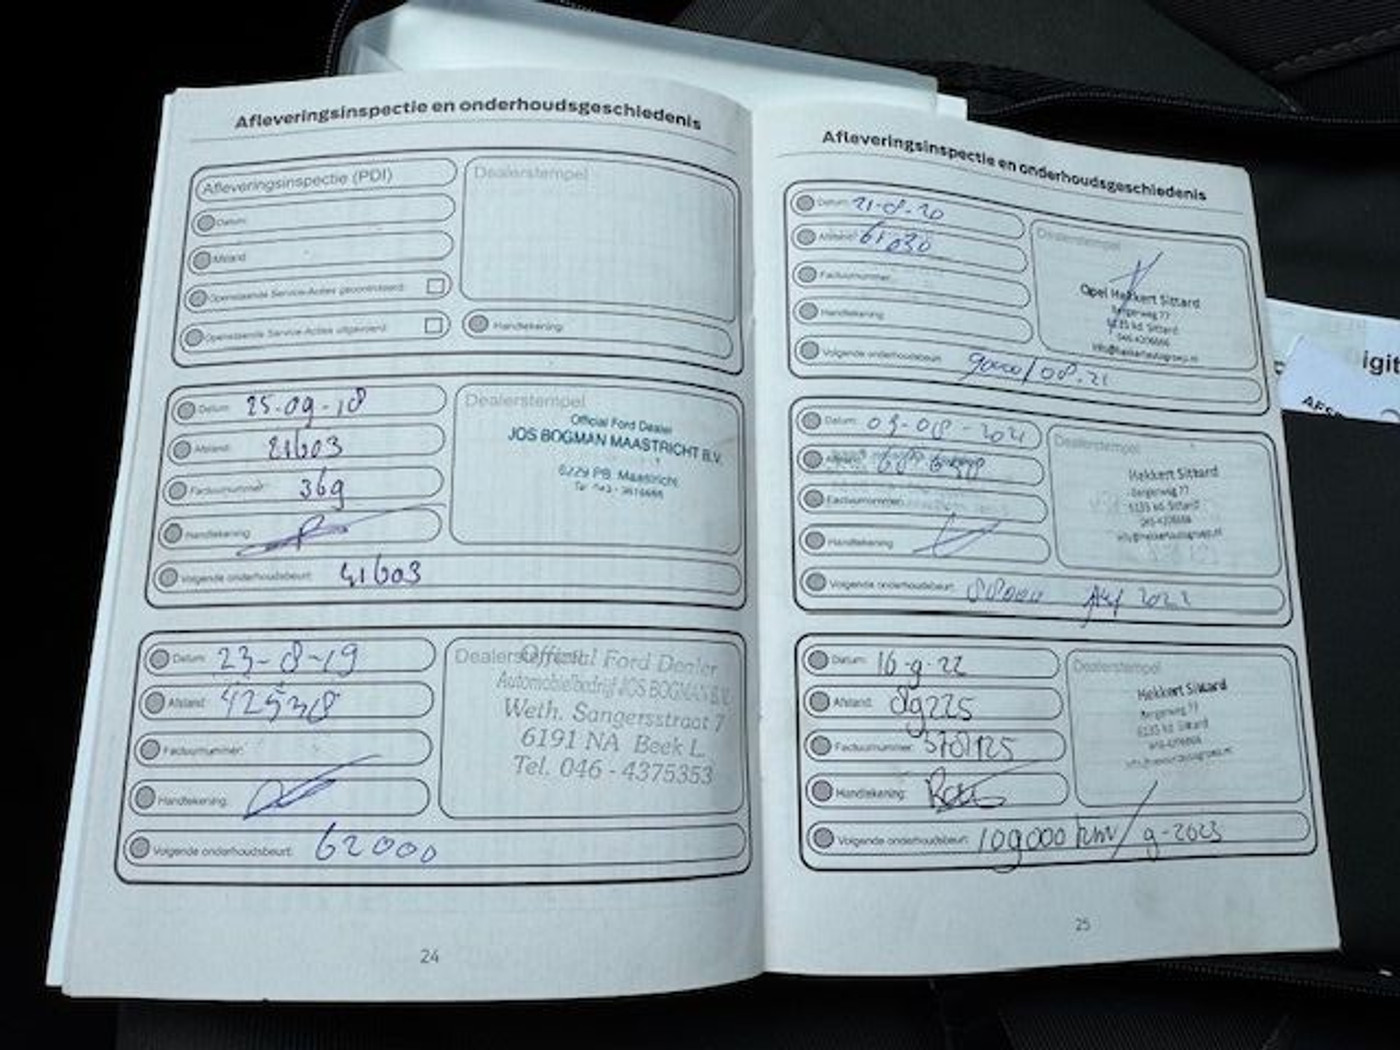 Afleveringsinspectie en onderhoudsgeschiedenis
Afleveringsinspectie (PDI)
Dealerstempel
Datum:
Afstand:
Openstaande Service-Acties gecontroleerd:
Openstaande Service-Acties uitgevoerd:
Handtekening:
Datum: 25-09-18
Afstand: 21603
Factuurnummer: 369
Handtekening:
Volgende onderhoudsbeurt: 41603
Dealerstempel
Official Ford Dealer
JOS BOGMAN MAASTRICHT B.V.
6229 PB Maastricht
Datum: 23-8-19
Afstand: 42538
Factuurnummer:
Handtekening:
Volgende onderhoudsbeurt: 62000
Dealerstempel
Official Ford Dealer
Automobielbedrijf JOS BOGMAN B.V.
Weth. Sangersstraat 7
6191 NA Beek L.
Tel. 046 - 4375353
24
Afleveringsinspectie en onderhoudsgeschiedenis
Datum: 21-8-20
Afstand: 61030
Factuurnummer:
Handtekening:
Volgende onderhoudsbeurt: 90000/08.21
Dealerstempel
Opel Hekkert Sittard
Bergerweg 77
6135 kd Sittard
046-4206666
info@hekkertautogroep.nl
Datum: 09-08-2021
Afstand:
Factuurnummer:
Handtekening:
Volgende onderhoudsbeurt: 88000 2022
Dealerstempel
Hekkert Sittard
Bergerweg 77
6135 kd Sittard
046-4206666
info@hekkertautogroep.nl
Datum: 16-9-22
Afstand: 89225
Factuurnummer: 3701125
Handtekening:
Volgende onderhoudsbeurt: 109000 km/ 9-2023
Dealerstempel
Hekkert Sittard
Bergerweg 77
6135 kd Sittard
046-4206666
info@hekkertautogroep.nl
25
igit